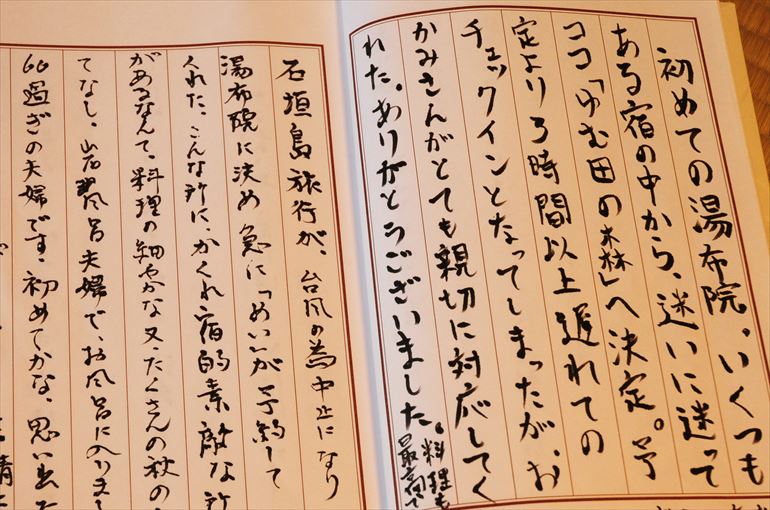 初めての湯布院。いくつも
ある宿の中から、迷いに迷って
ココ「ゆむ田の森」へ決定。予
定より3時間以上遅れての
チェックインとなってしまったが、お
かみさんがとても親切に対応してく
れた。ありがとうございました。
料理も
最高で
石垣島旅行が、台風の為中止になり
湯布院に決め急に「めい」が予約して
くれた、こんな所に、かくれ宿的素敵な所
があるなんて、料理の細やかな又たくさんの秋の
てなし、岩風呂夫婦で、お風呂に入りまし
60過ぎの夫婦です。初めてかな、思い出た